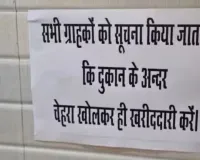 सभी ग्राहकों को सूचना किया जात
कि दुकान के अन्दर
चेहरा खोलकर ही खरीददारी करें।